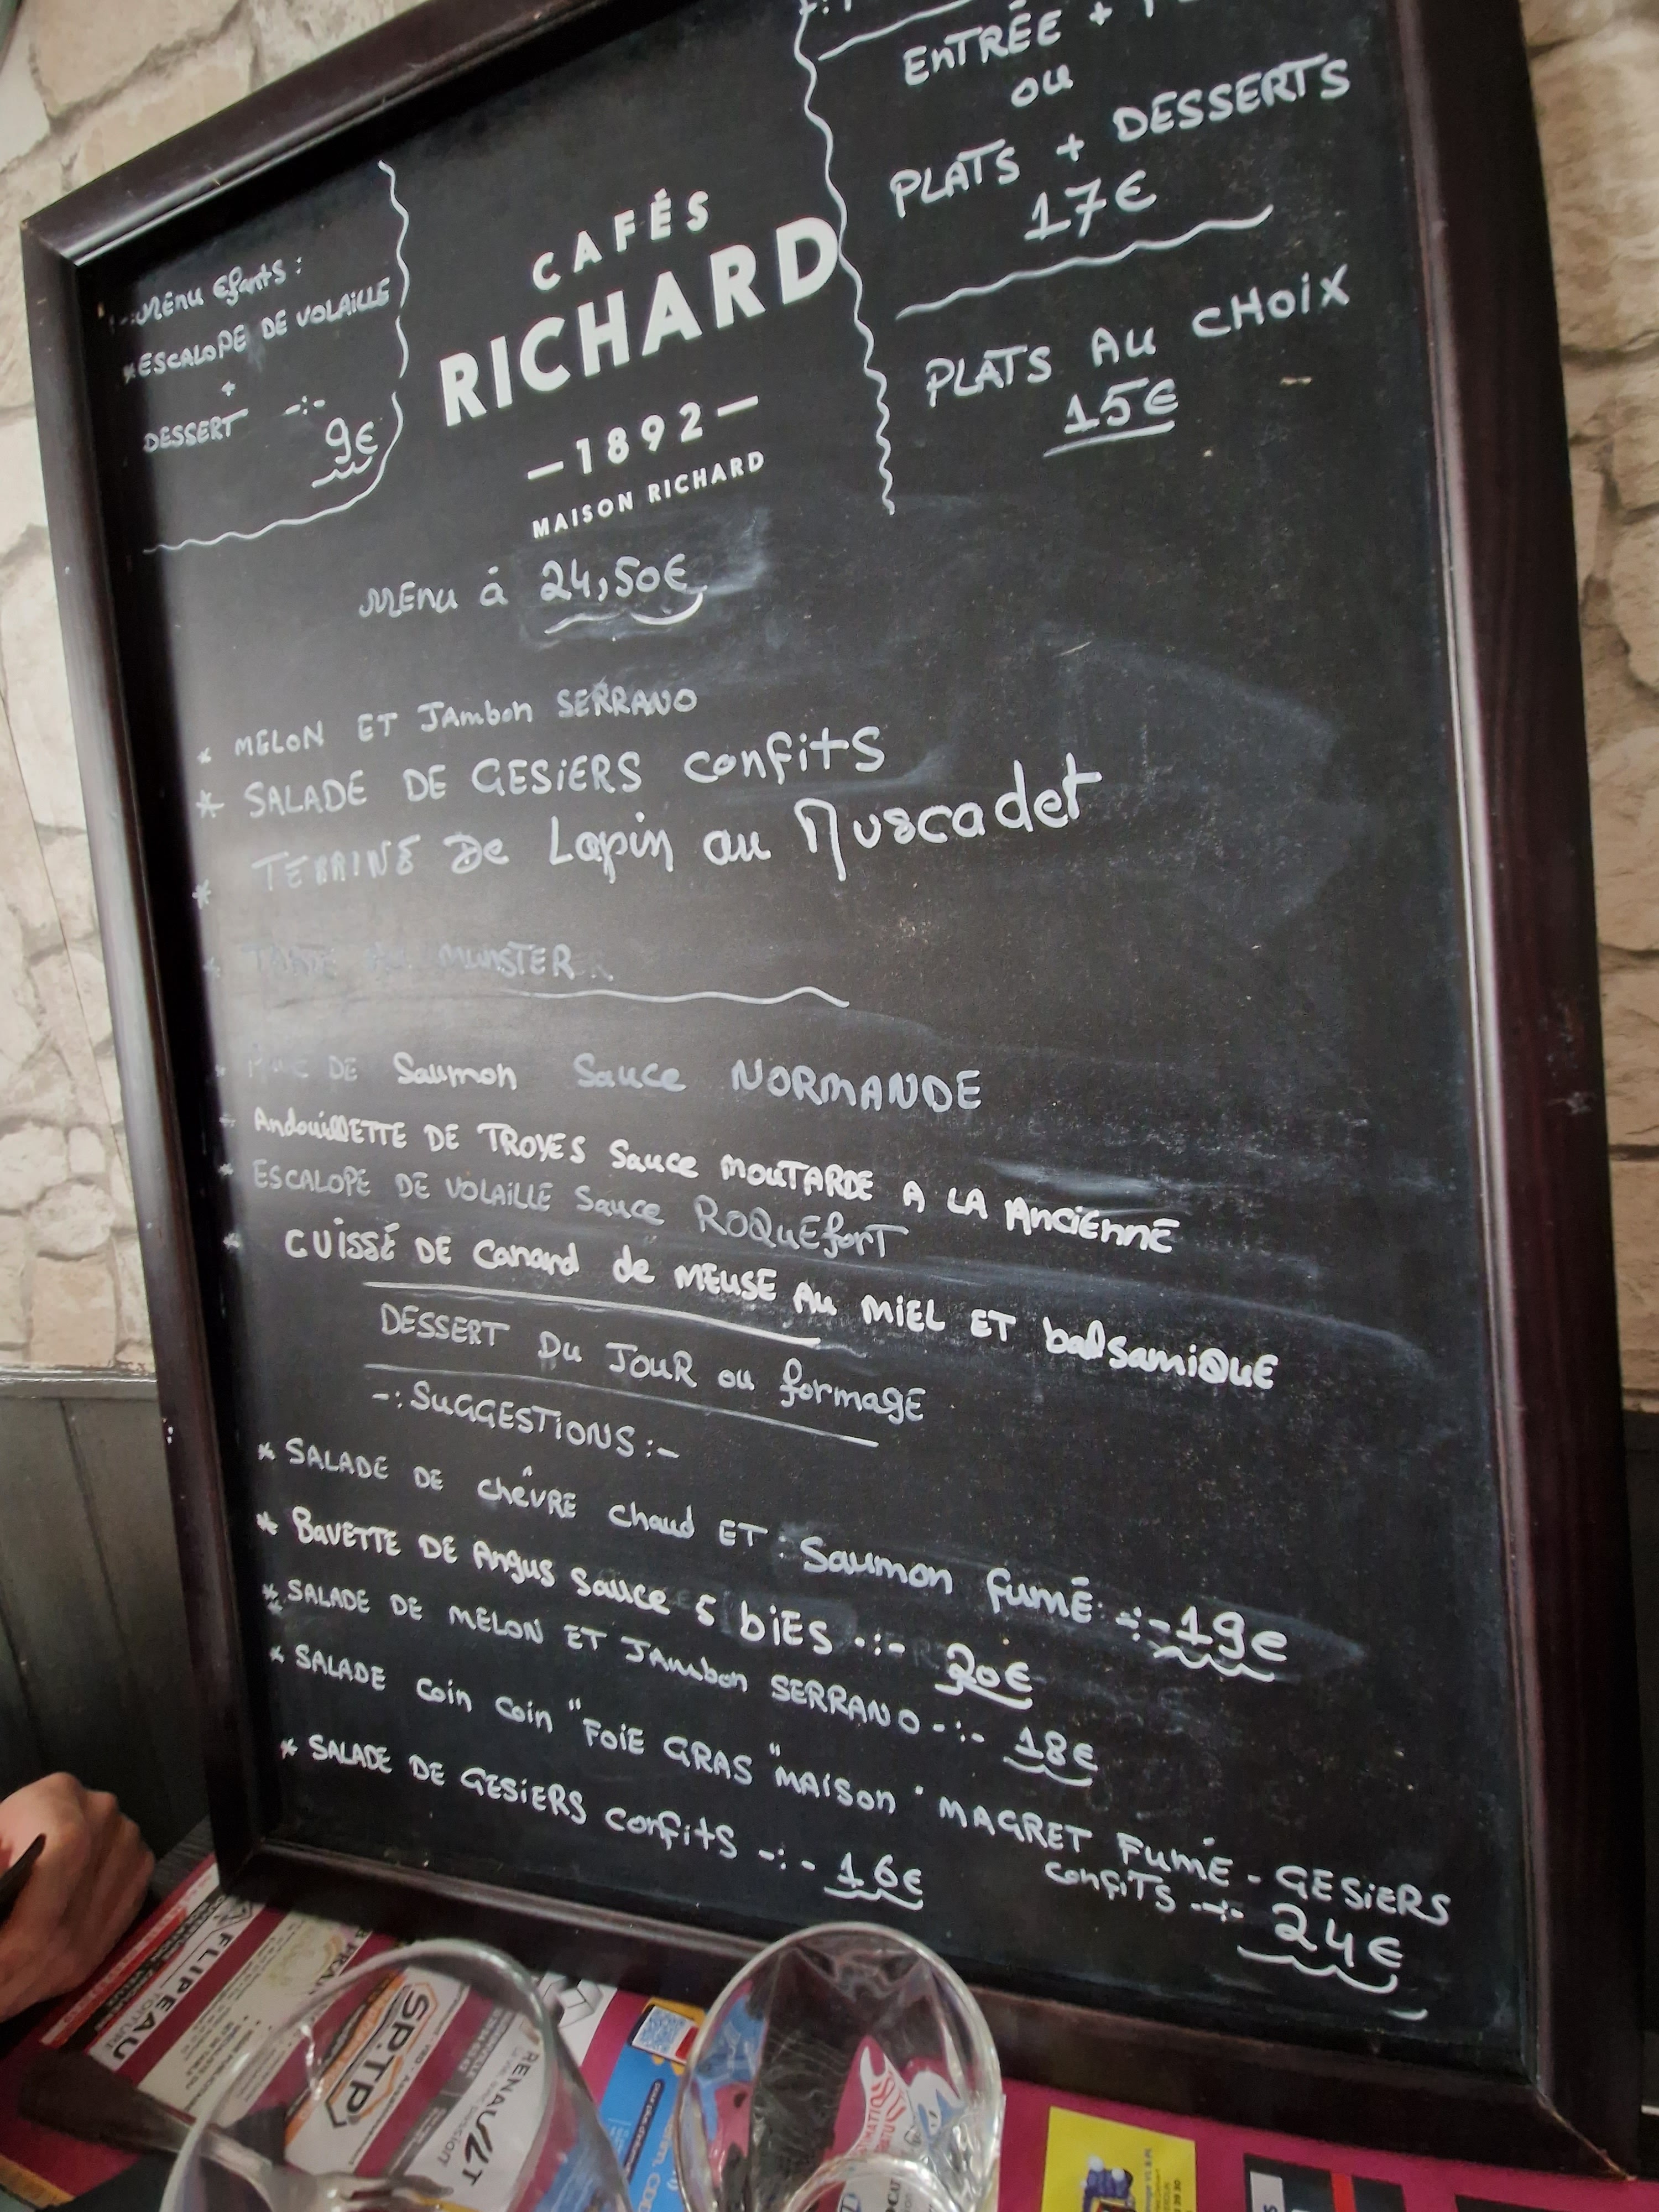 ENTRÉE +
ou
PLATS + DESSERTS
17€
PLATS AU CHOIX
15€
-:MENU Efants :
*ESCALOPE DE VOLAILLE
+
DESSERT -:-
9€
CAFÉS
RICHARD
—1892—
MAISON RICHARD
MENU à 24,50€
* MELON ET JAmbon SERRANO
* SALADE DE GESIERS confits
* TERRINE De Lapin au Muscadet
* MUNSTER
DE Saumon Sauce NORMANDE
AndouillETTE DE TROYES Sauce MOUTARDE A LA AnciEnnE
* ESCALOPE DE VOLAILLE Sauce ROQUEforT
* CUISSE DE Canard de MEUSE AU MIEL ET balsamiQUE
DESSERT DU JOUR ou formagE
-:SUGGESTIONS:-
* SALADE DE chèvRE chaud ET : Saumon fumé -:-19€
* BAVETTE DE Angus Sauce 5 biES -:- 20€
* SALADE DE MELON ET JAmbon SERRANO -:- 18€
* SALADE coin coin "FOIE GRAS "MAISON " MAGRET FUMÉ - GESIERS
confiTS -:- 24€
* SALADE DE GESIERS confits -:- 16€
FLIPEAU
SP.TP
RENAULT